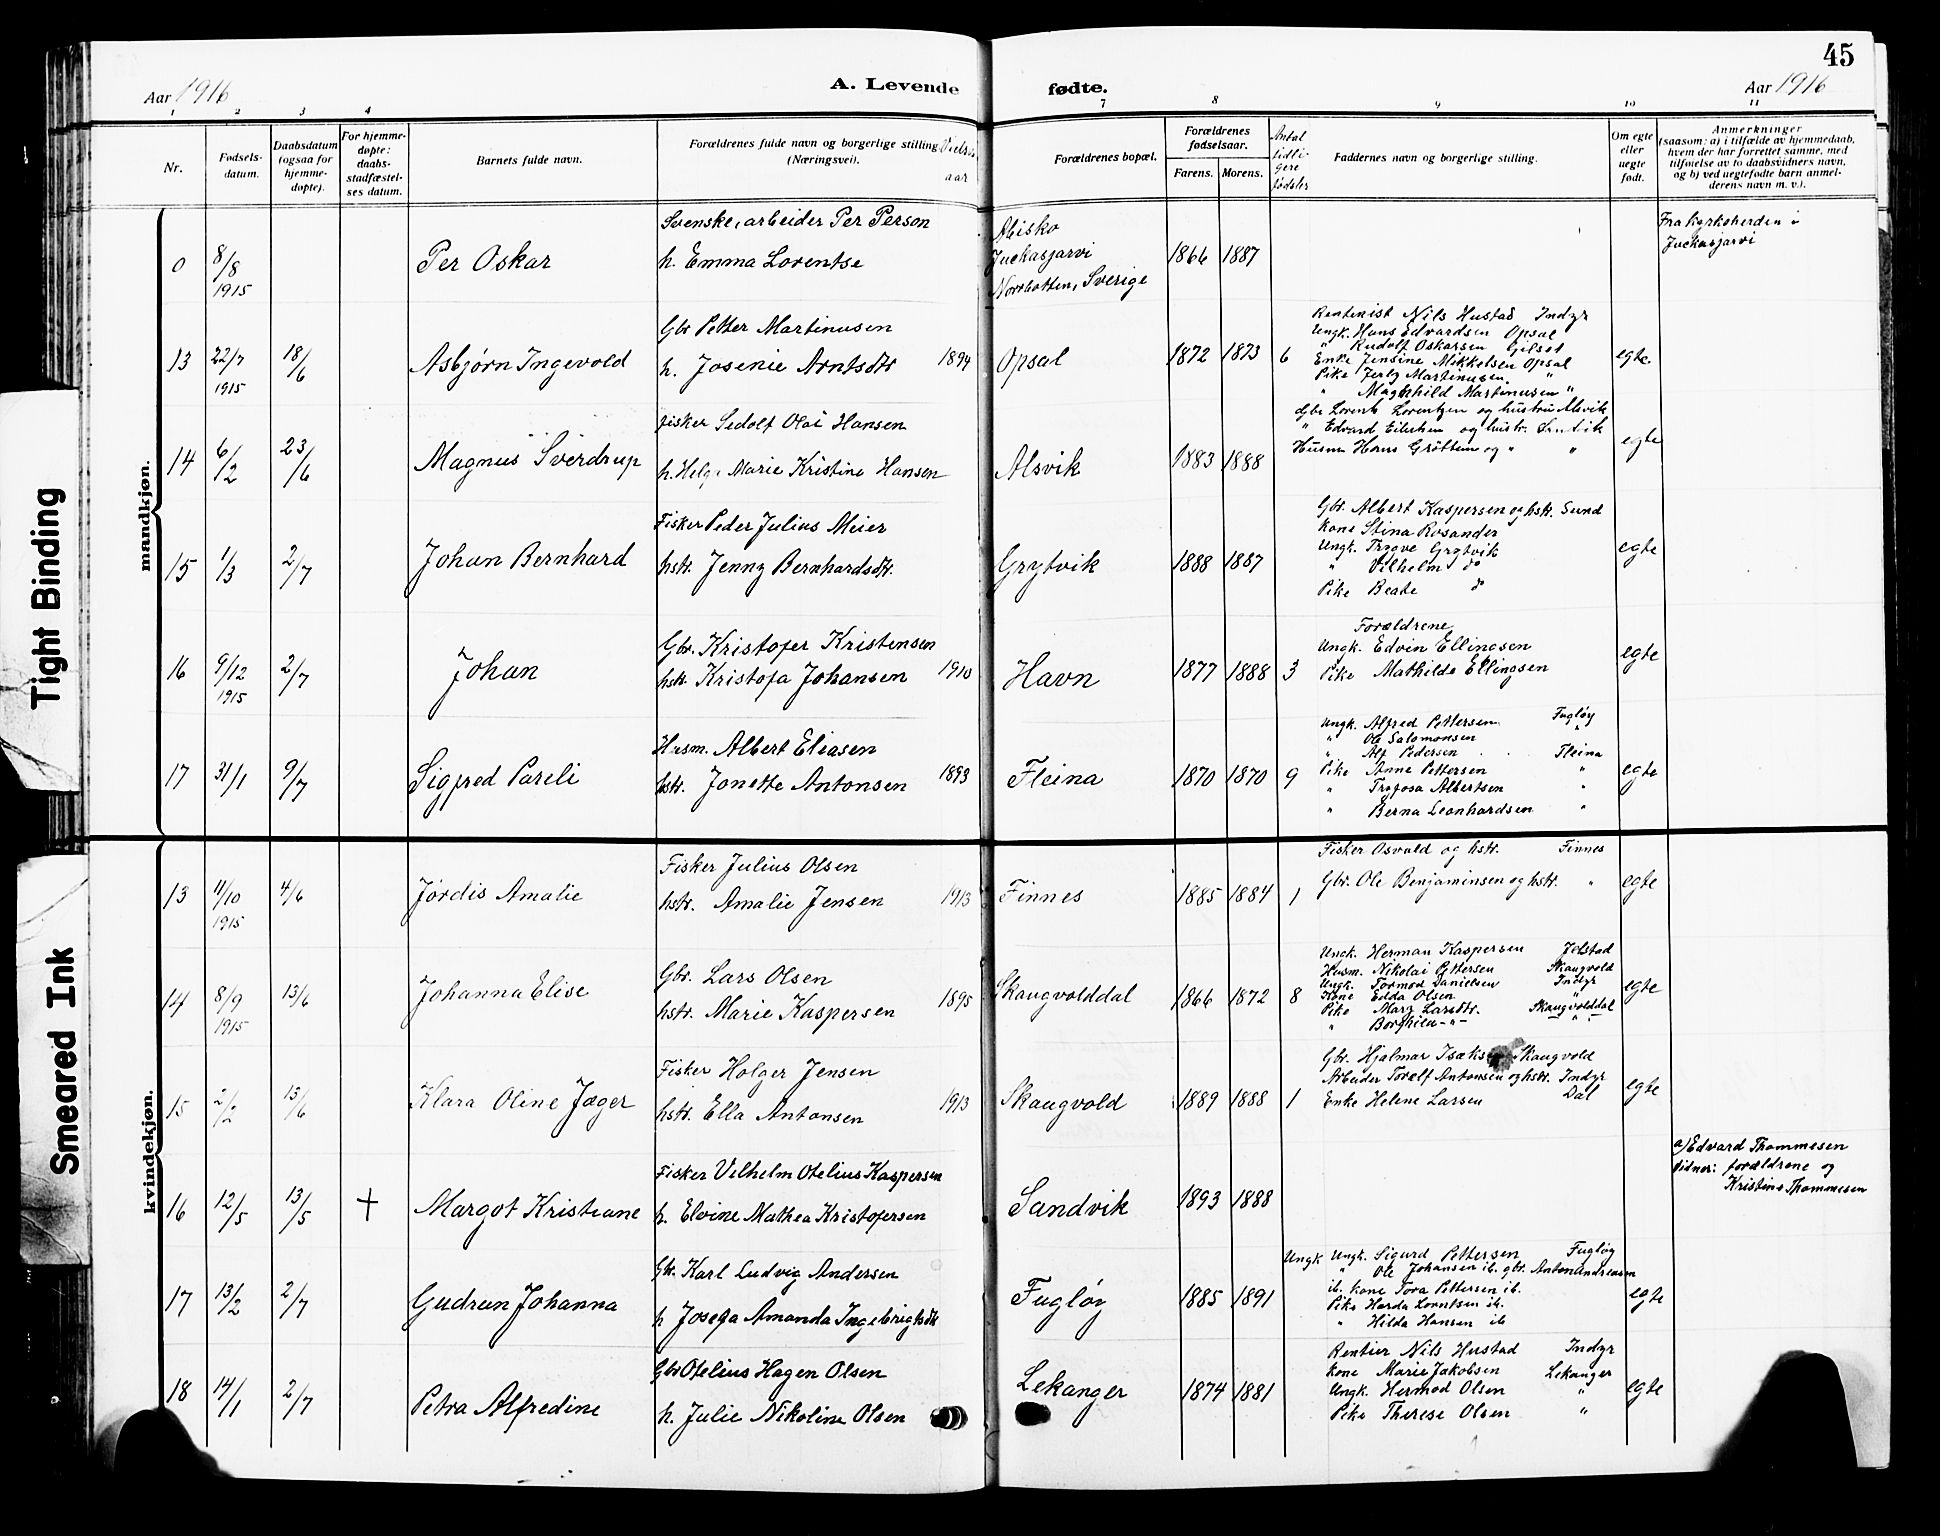 45
Aar 1916
A. Levende fødte.
Aar 1916
1 2 3 4 7 8 9 10 11
Nr.
Fødsels-
datum.
Daabsdatum
(ogsaa for
hjemme-
døpte).
For hjemme-
døpte:
daabs-
stadfæstel-
ses datum.
Barnets fulde navn.
Forældrenes fulde navn og borgerlige stilling
(Næringsvei).
Vielses
aar
Forældrenes bopæl.
Forældrenes
fødselsaar.
Farens. Morens.
Antal
tidli-
gere
fødsler
Faddernes navn og borgerlige stilling.
Om egte
eller
uegte
født.
Anmerkninger
(saasom: a) i tilfælde av hjemmedaab,
hvem der har forrettet samme, med
tilføielse av to daabsvidners navn,
og b) ved uegtefødte barn anmel-
derens navn m. v.).
mandkjøn.
0
8/8
1915
Per Oskar
Svenske, arbeider Per Person
h. Emma Lorentse
Abisko
Juckasjarvi
Norrbotten, Sverige
1866 1887
Fra kyrkoherden i
Juckasjarvi
13
22/7
1915
18/6
Asbjørn Ingevold
Gbr Petter Martinusen
h. Josenie Arntsdtr
1894
Opsal
1872 1873 6
Rentenist Nils Hustad Indyr
Ungk. Hans Edvardsen Opsal
" Rudolf Oskarsen Gilset
Enke Jensine Mikkelsen Opsal
Pike Jerly Martinusen "
" Magnhild Martinusen "
egte
14
6/2
23/6
Magnus Sverdrup
fisker Sedolf Olai Hansen
h. Helga Marie Kristine Hansen
Alsvik
1883 1888
Gbr Lorents Lorentzen og hustru Alsvik
" Edvard Eilertsen og hustr. Sandvik
Husm Hans Grøttum og " "
egte
15
1/3
2/7
Johan Bernhard
Fisker Peder Julius Meier
hstr. Jenny Bernhardsdtr.
Grytvik
1888 1887
Gbr. Albert Kaspersen og hstr. Sund
Kone Stina Rosander
Ungk. Trygve Grytvik
" Vilhelm do
Pike Beate do
egte
16
9/12
1915
2/7
Johan
Gbr. Kristofer Kristensen
hstr Kristofa Johansen
1910
Havn
1877 1888 3
Forældrene
Ungk. Edvin Ellingsen
Pike Mathilde Ellingsen
egte
17
31/1
9/7
Sigfred Pareli
Husm. Albert Eliasen
hstr. Jonette Antonsen
1893
Fleina
1870 1870 9
Ungk. Alfred Pettersen Fugløy
" Ole Salomonsen "
" Alf Pedersen Fleina
Pike Anne Pettersen "
" Trofosa Albertsen "
" Berna Leonhardsen "
egte
kvindekjøn.
13
11/10
1915
4/6
Jordis Amalie
Fisker Julius Olsen
hstr. Amalie Jensen
1913
Finnes
1885 1884 1
Fisker Osvald og hstr. Finnes
Gbr. Ole Benjaminsen og hstr. "
egte
14
8/9
1915
13/6
Johanna Elise
Gbr. Lars Olsen
hstr. Marie Kaspersen
1895
Skaugvolddal
1866 1872 8
Ungk. Herman Kaspersen Jelstad
Husm. Nikolai Pettersen Skaugvold
Ungk. Tormod Danielsen Indyr
Kone Edda Olsen "
Pike Mary Larsdtr. Skaugvolddal
" Borghild -"- "
egte
15
2/2
13/6
Klara Oline Jæger
Fisker Holger Jensen
hstr. Ella Antonsen
1913
Skaugvold
1889 1888 1
Gbr. Hjalmar Isaksen Skaugvold
Arbeider Toralf Antonsen og hstr. Indyr
Enke Helene Larsen Dal
egte
16
12/5
13/5
+
Margot Kristiane
Fisker Vilhelm Otelius Kaspersen
h. Elvine Mathea Kristofersen
Sandvik
1893 1888
a) Edvard Thommesen
Vidner: forældrene og
Kristine Thommesen
17
13/2
2/7
Gudrun Johanna
Gbr. Karl Ludvig Andersen
h Josefa Amanda Ingebrigtsdtr
Fugløy
1885 1891
Ungk Ungk. Sigurd Pettersen Fugløy
" Ole Johansen ib. gbr. Anton Andreasen
ib. kone Tora Pettersen ib.
Pike Harda Lorntsen ib.
" Hilda Hansen ib
egte
18
14/1
2/7
Petra Alfredine
Gbr Otelius Hagen Olsen
h. Julie Nikoline Olsen
Lekanger
1874 1881
Rentier Nils Hustad Indyr
kone Marie Jakobsen Lekanger
Ungk. Hermod Olsen "
Pike Therese Olsen "
egte
Tight Binding
Smeared Ink